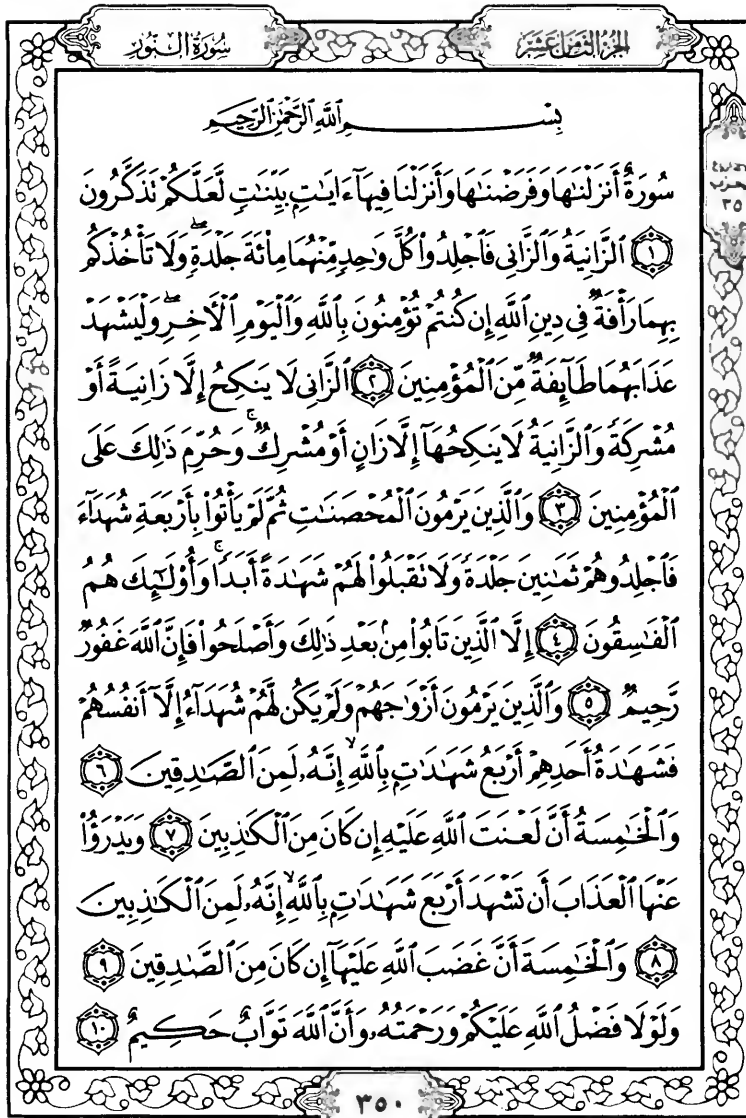 سُورَةُ النُّورِ الجُزْءُ الثَّامِنَ عَشَرَ
بِسْمِ ٱللَّهِ ٱلرَّحْمَٰنِ ٱلرَّحِيمِ
سُورَةٌ أَنزَلْنَٰهَا وَفَرَضْنَٰهَا وَأَنزَلْنَا فِيهَآ ءَايَٰتٍۭ بَيِّنَٰتٍ لَّعَلَّكُمْ تَذَكَّرُونَ
١ ٱلزَّانِيَةُ وَٱلزَّانِى فَٱجْلِدُوا۟ كُلَّ وَٰحِدٍ مِّنْهُمَا مِا۟ئَةَ جَلْدَةٍۖ وَلَا تَأْخُذْكُم
بِهِمَا رَأْفَةٌ فِى دِينِ ٱللَّهِ إِن كُنتُمْ تُؤْمِنُونَ بِٱللَّهِ وَٱلْيَوْمِ ٱلْءَاخِرِۖ وَلْيَشْهَدْ
عَذَابَهُمَا طَآئِفَةٌ مِّنَ ٱلْمُؤْمِنِينَ ٢ ٱلزَّانِى لَا يَنكِحُ إِلَّا زَانِيَةً أَوْ
مُشْرِكَةً وَٱلزَّانِيَةُ لَا يَنكِحُهَآ إِلَّا زَانٍ أَوْ مُشْرِكٌۚ وَحُرِّمَ ذَٰلِكَ عَلَى
ٱلْمُؤْمِنِينَ ٣ وَٱلَّذِينَ يَرْمُونَ ٱلْمُحْصَنَٰتِ ثُمَّ لَمْ يَأْتُوا۟ بِأَرْبَعَةِ شُهَدَآءَ
فَٱجْلِدُوهُمْ ثَمَٰنِينَ جَلْدَةً وَلَا تَقْبَلُوا۟ لَهُمْ شَهَٰدَةً أَبَدًاۚ وَأُو۟لَٰٓئِكَ هُمُ
ٱلْفَٰسِقُونَ ٤ إِلَّا ٱلَّذِينَ تَابُوا۟ مِنۢ بَعْدِ ذَٰلِكَ وَأَصْلَحُوا۟ فَإِنَّ ٱللَّهَ غَفُورٌ
رَّحِيمٌ ٥ وَٱلَّذِينَ يَرْمُونَ أَزْوَٰجَهُمْ وَلَمْ يَكُن لَّهُمْ شُهَدَآءُ إِلَّآ أَنفُسُهُمْ
فَشَهَٰدَةُ أَحَدِهِمْ أَرْبَعُ شَهَٰدَٰتٍۭ بِٱللَّهِۙ إِنَّهُۥ لَمِنَ ٱلصَّٰدِقِينَ ٦
وَٱلْخَٰمِسَةُ أَنَّ لَعْنَتَ ٱللَّهِ عَلَيْهِ إِن كَانَ مِنَ ٱلْكَٰذِبِينَ ٧ وَيَدْرَؤُا۟
عَنْهَا ٱلْعَذَابَ أَن تَشْهَدَ أَرْبَعَ شَهَٰدَٰتٍۭ بِٱللَّهِۙ إِنَّهُۥ لَمِنَ ٱلْكَٰذِبِينَ
٨ وَٱلْخَٰمِسَةَ أَنَّ غَضَبَ ٱللَّهِ عَلَيْهَآ إِن كَانَ مِنَ ٱلصَّٰدِقِينَ ٩
وَلَوْلَا فَضْلُ ٱللَّهِ عَلَيْكُمْ وَرَحْمَتُهُۥ وَأَنَّ ٱللَّهَ تَوَّابٌ حَكِيمٌ ١٠
٣٥
٣٥٠